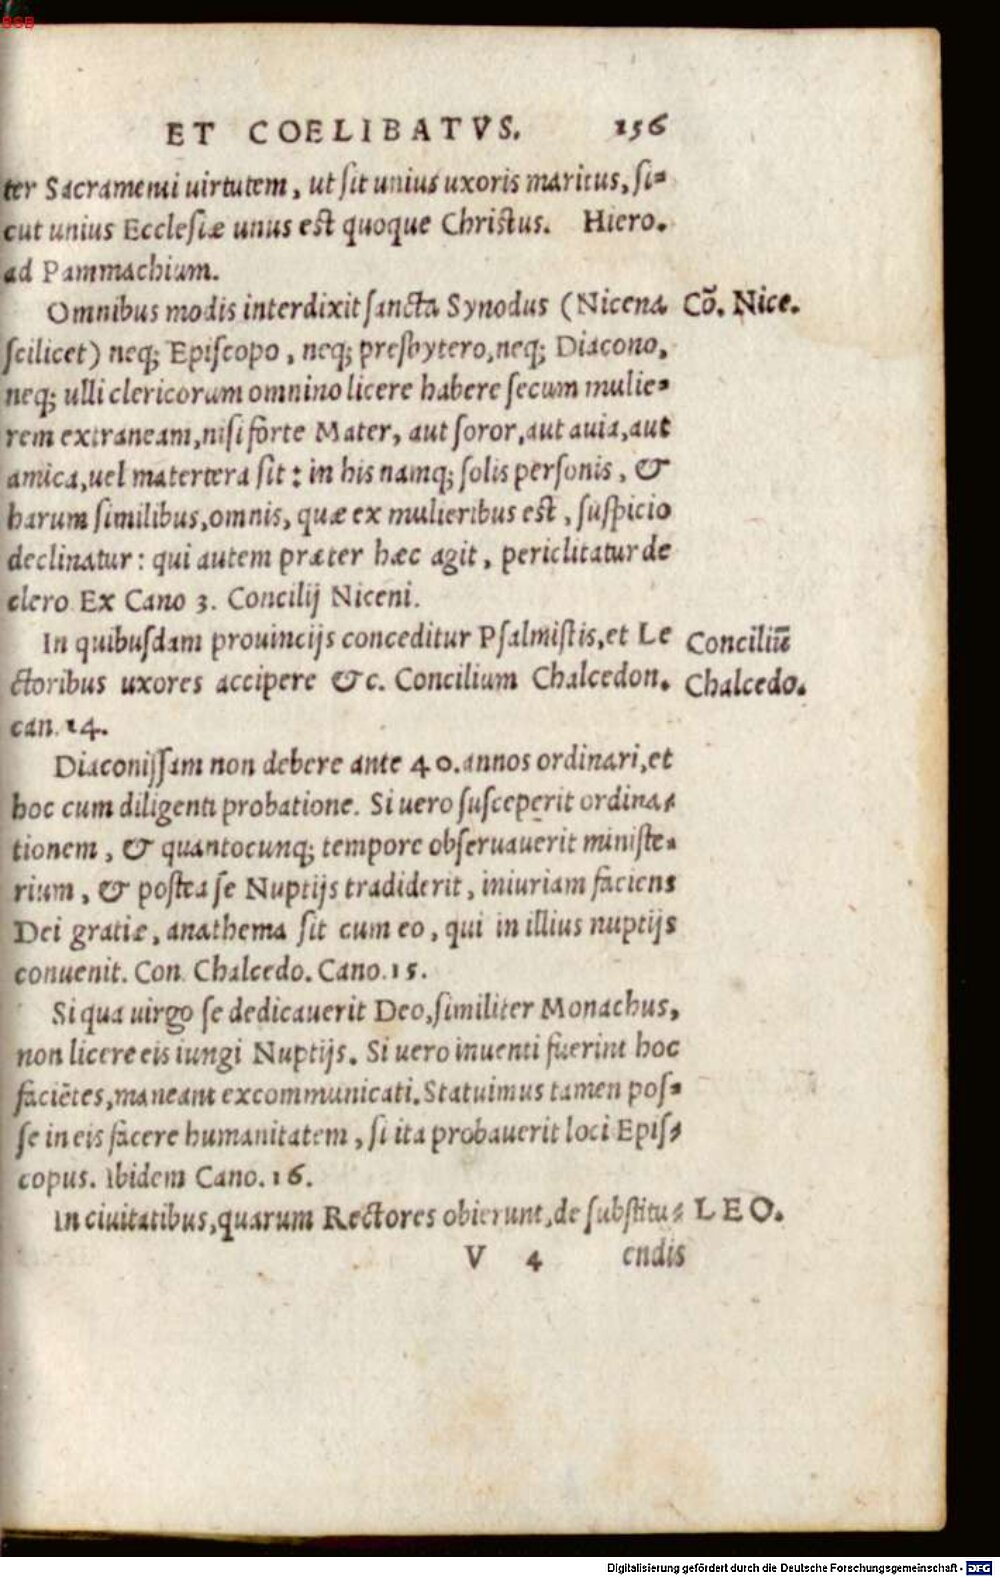 BSB
ET COELIBATVS. 156
ter Sacramenti uirtutem, ut sit unius uxoris maritus, si-
cut unius Ecclesiæ unus est quoque Christus. Hiero.
ad Pammachium.
Omnibus modis interdixit sancta Synodus (Nicena Cō. Nice.
scilicet) neq; Episcopo, neq; presbytero, neq; Diacono,
neq; ulli clericorum omnino licere habere secum mulie-
rem extraneam, nisi forte Mater, aut soror, aut auia, aut
amica, uel matertera sit: in his namq; solis personis, &
harum similibus, omnis, quæ ex mulieribus est, suspicio
declinatur: qui autem præter hæc agit, periclitatur de
clero Ex Cano 3. Concilij Niceni.
In quibusdam prouincijs conceditur Psalmistis, et Le Conciliū
ctoribus uxores accipere &c. Concilium Chalcedon. Chalcedo.
can. 14.
Diaconissam non debere ante 40. annos ordinari, et
hoc cum diligenti probatione. Si uero susceperit ordina-
tionem, & quantocunq; tempore obseruauerit ministe-
rium, & postea se Nuptijs tradiderit, iniuriam faciens
Dei gratiæ, anathema sit cum eo, qui in illius nuptijs
conuenit. Con. Chalcedo. Cano. 15.
Si qua uirgo se dedicauerit Deo, similiter Monachus,
non licere eis iungi Nuptijs. Si uero inuenti fuerint hoc
faciētes, maneant excommunicati. Statuimus tamen pos-
se in eis facere humanitatem, si ita probauerit loci Epis-
copus. Ibidem Cano. 16.
In ciuitatibus, quarum Rectores obierunt, de substitu- LEO.
V 4 endis
Digitalisierung gefördert durch die Deutsche Forschungsgemeinschaft - DFG